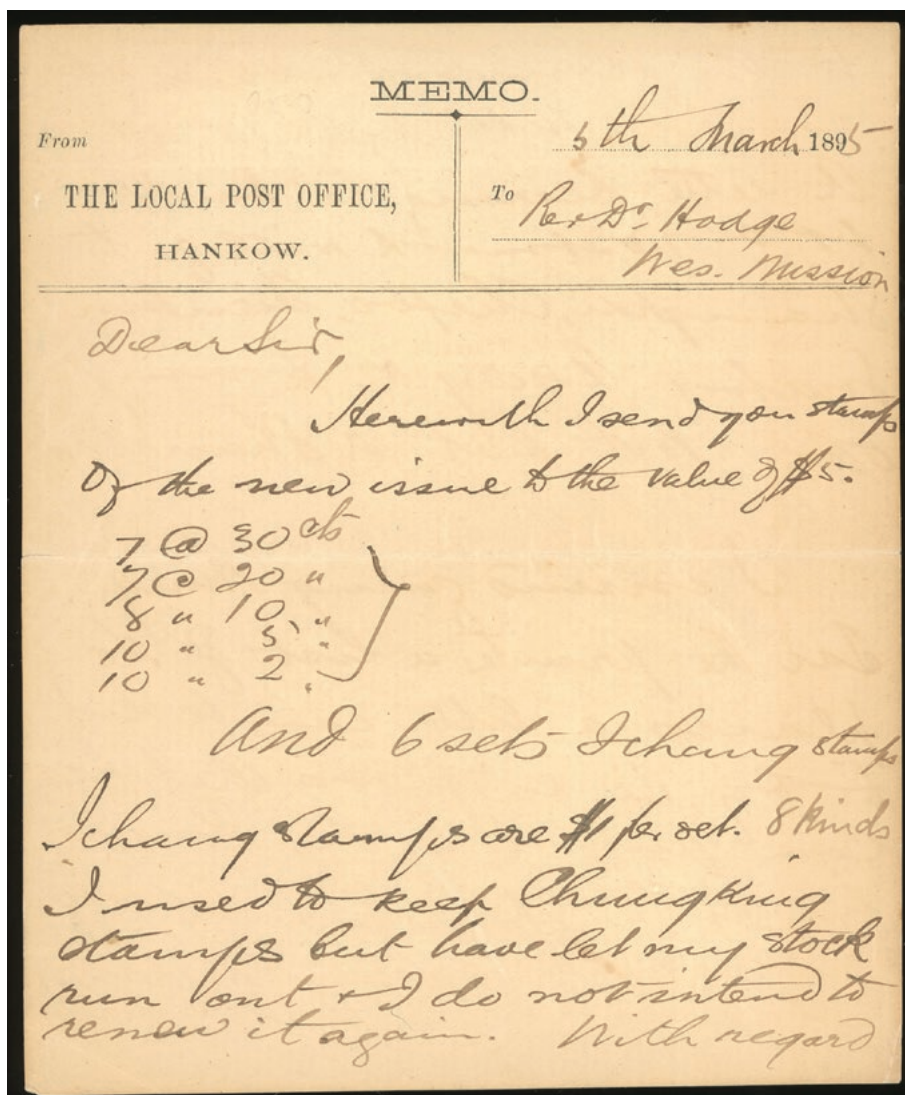 MEMO.
From
THE LOCAL POST OFFICE,
HANKOW.
5th March 1895
To
Revd Dr. Hodge
Wes. Mission
Dear Sir,
Herewith I send you stamps
of the new issue to the value of $5.
7 @ 30 cts
7 @ 20 "
8 " 10 "
10 " 5 "
10 " 2 "
And 6 sets Ichang stamps
Ichang stamps are $1 per set. 8 kinds
I used to keep Chungking
stamps but have let my stock
run out & I do not intend to
renew it again. With regard